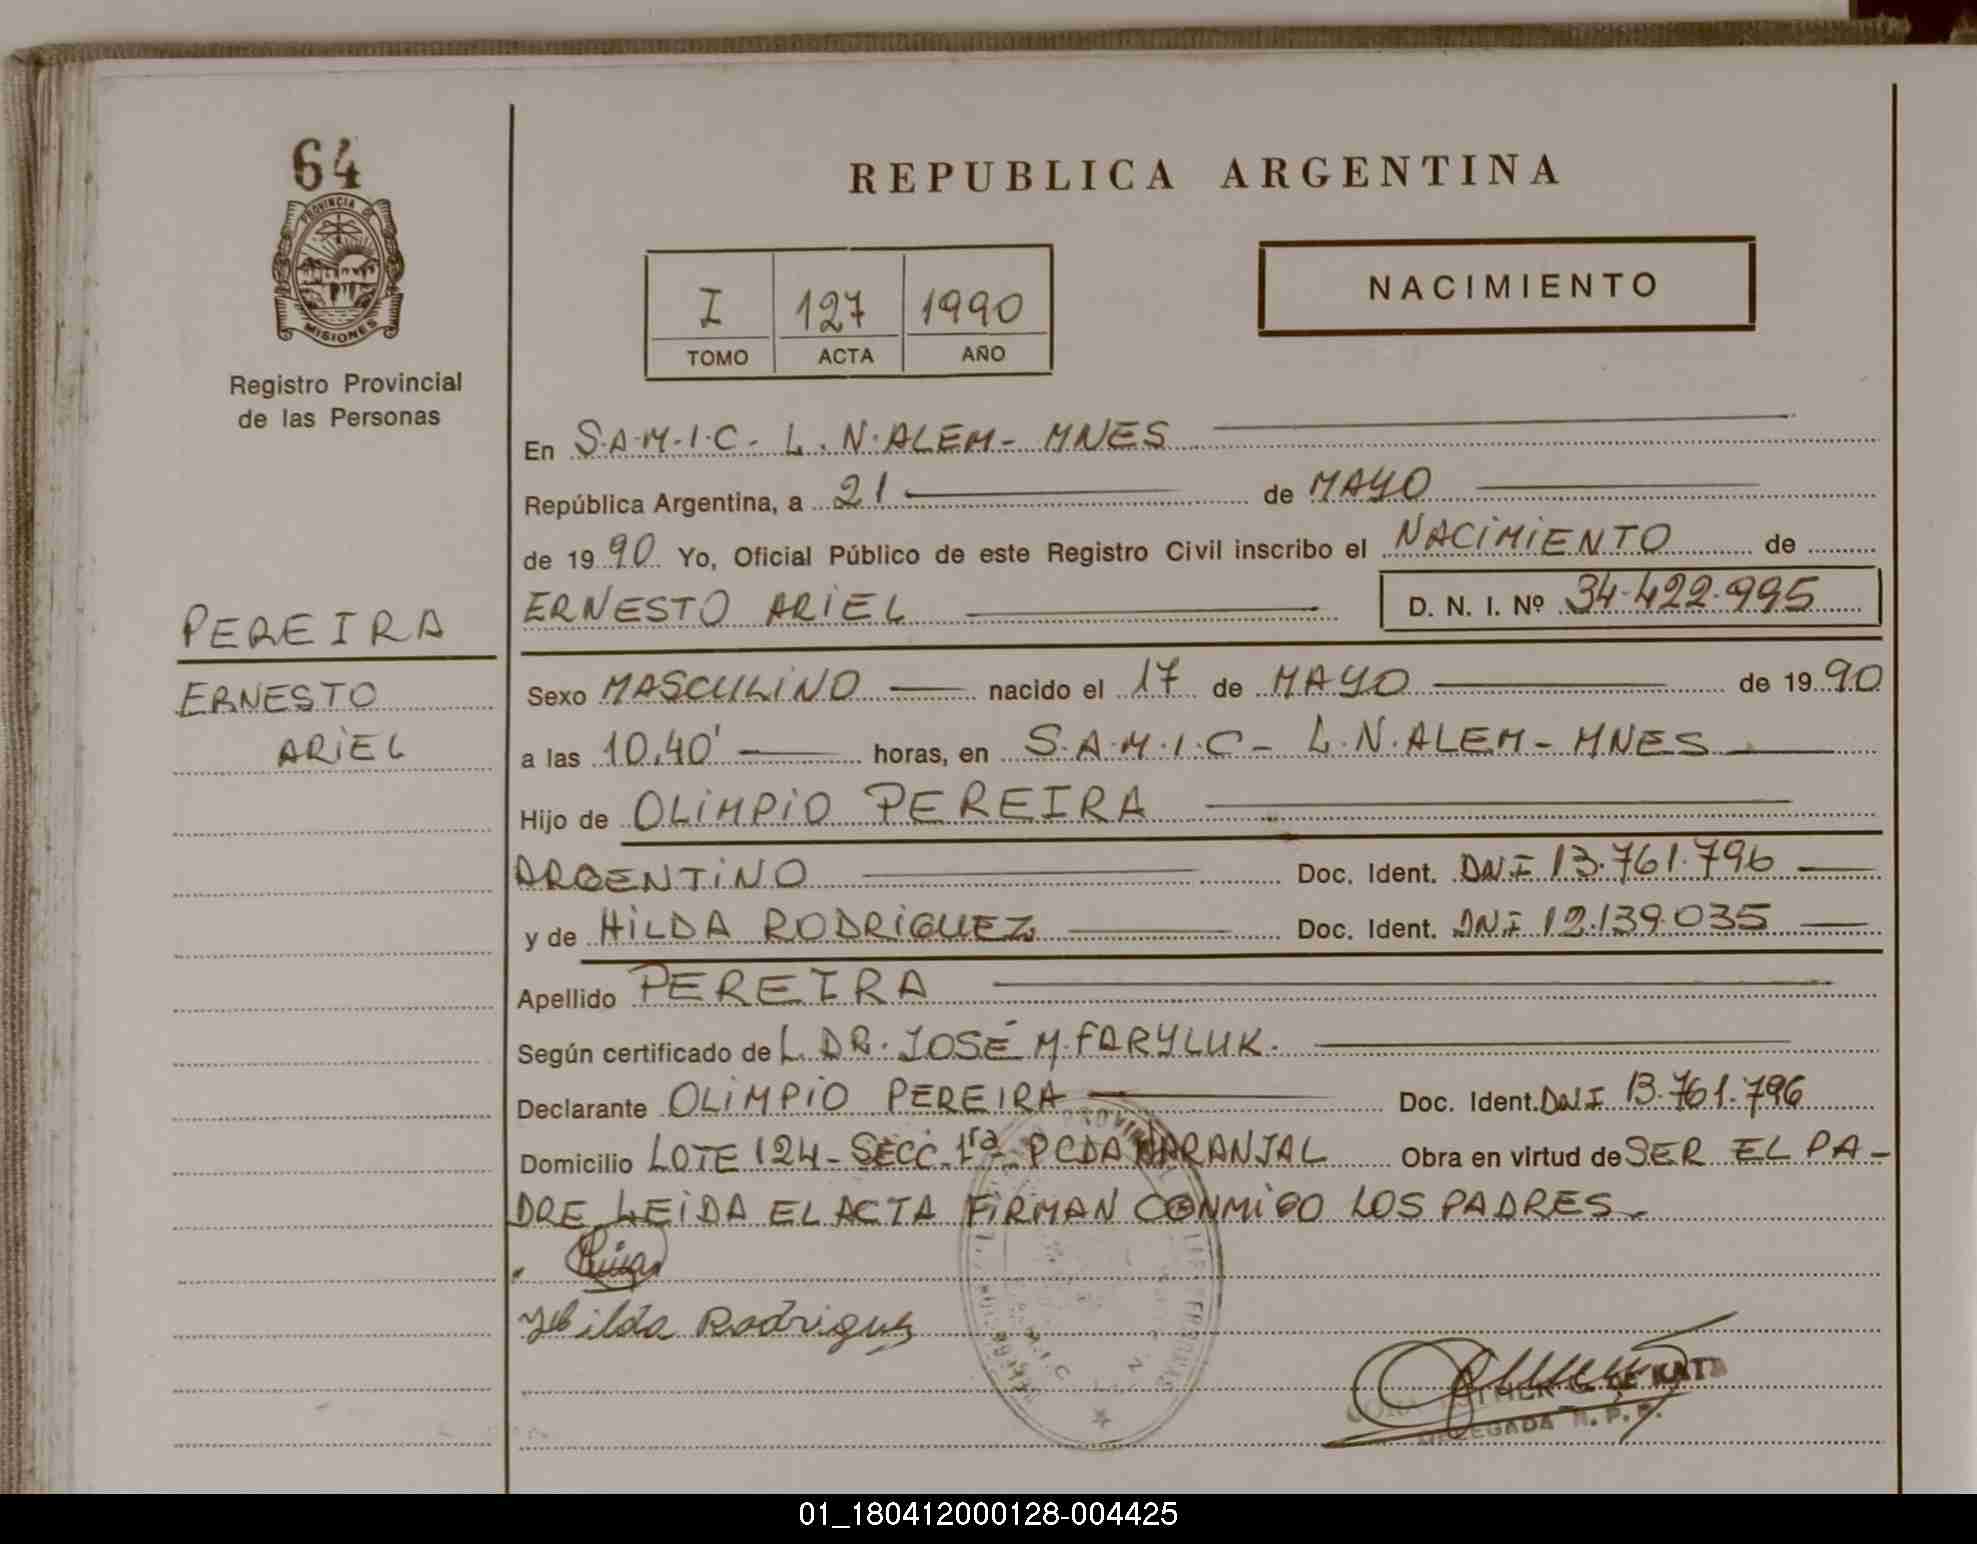 64
PROVINCIA DE
MISIONES
Registro Provincial
de las Personas
PEREIRA
ERNESTO
ARIEL
REPUBLICA ARGENTINA
I 127 1990
TOMO ACTA AÑO
NACIMIENTO
En S.A.M.I.C- L.N.ALEM- MNES
República Argentina, a 21 de MAYO
de 1990 Yo, Oficial Público de este Registro Civil inscribo el NACIMIENTO de
ERNESTO ARIEL D. N. I. Nº 34.422.995
Sexo MASCULINO nacido el 17 de MAYO de 1990
a las 10,40' horas, en S.A.M.I.C- L.N.ALEM- MNES
Hijo de OLIMPIO PEREIRA
ARGENTINO Doc. Ident. DNI 13.761.796
y de HILDA RODRIGUEZ Doc. Ident. DNI 12.139.035
Apellido PEREIRA
Según certificado de L. DR. JOSÉ M. FARYLUK.
Declarante OLIMPIO PEREIRA Doc. Ident. DNI 13.761.796
Domicilio LOTE 124- SECC. 1ra PCDA NARANJAL Obra en virtud de SER EL PA-
DRE LEIDA EL ACTA FIRMAN CONMIGO LOS PADRES-
Hilda Rodriguez
DELEGADA R. P. P.
01_180412000128-004425